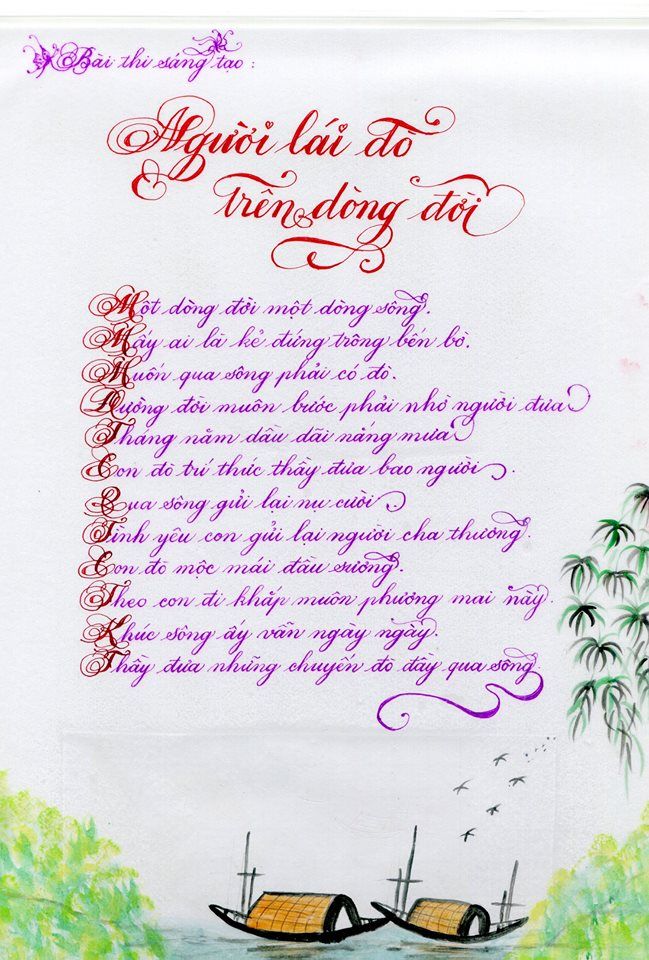 Bài thi sáng tạo :
Người lái đò
trên dòng đời
Một dòng đời một dòng sông.
Mấy ai là kẻ đứng trông bến bờ.
Muốn qua sông phải có đò.
Đường đời muôn bước phải nhờ người đưa
Tháng năm dầu dãi nắng mưa
Con đò trí thức thầy đưa bao người.
Qua sông gửi lại nụ cười.
Tình yêu con gửi lại người cha thương.
Con đò mộc mái đầu sương.
Theo con đi khắp muôn phương mai này.
Khúc sông ấy vẫn ngày ngày.
Thầy đưa những chuyến đò đầy qua sông.